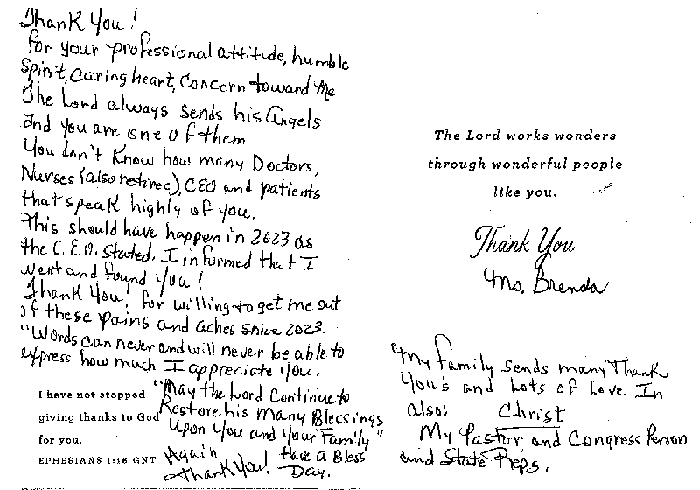 Thank You!
For your professional attitude, humble
Spirit, Caring heart, Concern toward me
The Lord always sends his Angels
and you are one of them
You don't Know how many Doctors,
Nurses (also retiree), CEO and patients
that speak highly of you.
This should have happen in 2023 as
the C.E.O. stated. I informed that I
went and found you!
Thank You, for willing to get me out
of these pains and aches since 2023.
"Words can never and will never be able to
express how much I appreciate You.
I have not stopped
giving thanks to God
for you.
EPHESIANS 1:16 GNT
"May the Lord Continue to
Restore his Many Blessings
Upon You and Your Family"
Again Have a Bless
Thank You! Day.
The Lord works wonders
through wonderful people
like you.
Thank You
Ms. Brenda
"My Family Sends many Thank
You's and Lots of Love. In
also: Christ
My Pastor and Congress Person
and State Reps.